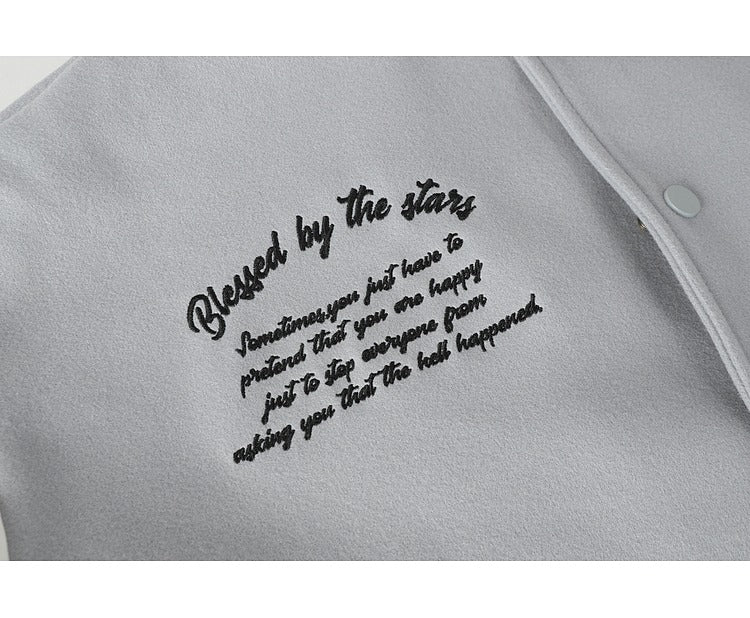 Blessed by the stars
Sometimes,you just have to
pretend that you are happy
just to stop everyone from
asking you that the hell happened.